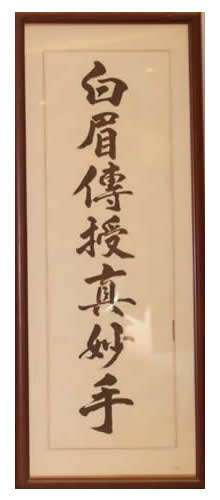 白眉傳授真妙手